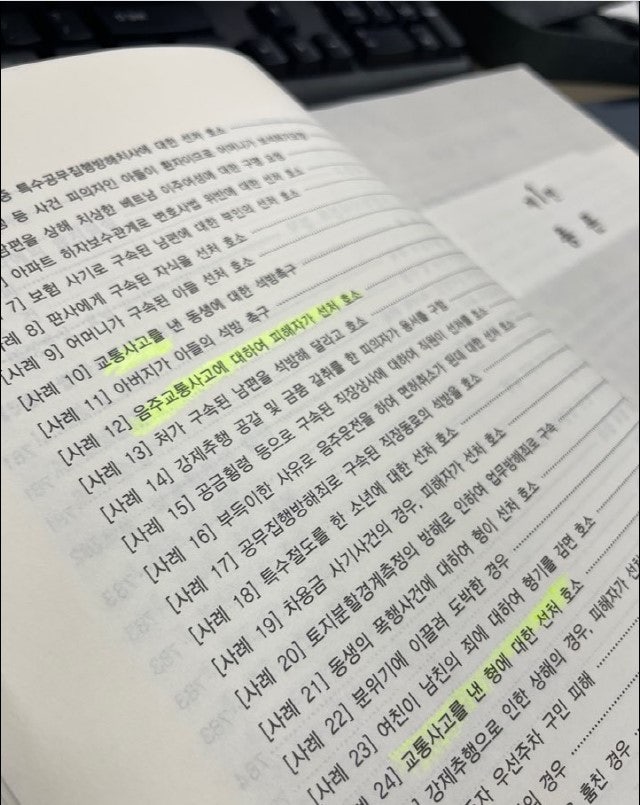 특수공무집행방해치사에 대한 선처 호소
등 사건 피의자인 아들이 환자이므로 어머니가
남편을 상해 치상한 베트남 이주여성에 대한 구명 요청
아파트 하자보수관계로 변호사법 위반에 대한 선처 호소
7] 보험 사기로 구속된 남편에 대한 부인의 선처 호소
사례 8] 판사에게 구속된 자식을 선처 호소
[사례 9] 어머니가 구속된 아들 선처 호소
[사례 10] 교통사고를 낸 동생에 대한 석방촉구
[사례 11] 아버지가 아들의 석방 촉구
[사례 12] 음주교통사고에 대하여 피해자가 선처 호소
[사례 13] 처가 구속된 남편을 석방해 달라고 호소
[사례 14] 강제추행 공갈 및 금품 갈취를 한 피의자가 용서를 구함
[사례 15] 공금횡령 등으로 구속된 직장상사에 대하여 직원이 선처를 호소
[사례 16] 부득이한 사유로 음주운전을 하여 면허취소가 된데 대한 선처 호소
[사례 17] 공무집행방해죄로 구속된 직장동료의 석방을 호소
[사례 18] 특수절도를 한 소년에 대한 선처 호소
[사례 19] 차용금 사기사건의 경우, 피해자가 선처 호소
[사례 20] 토지분할경계측정의 방해로 인하여 업무방해죄로 구속
[사례 21] 동생의 폭행사건에 대하여 형이 선처 호소
[사례 22] 분위기에 이끌려 도박한 경우
[사례 23] 여친이 남친의 죄에 대하여 형기를 감면 호소
[사례 24] 교통사고를 낸 형에 대한 선처 호소
강제추행으로 인한 상해의 경우, 피해자가 선처
우선주차 구민 피해
의 경우
훔친 경우